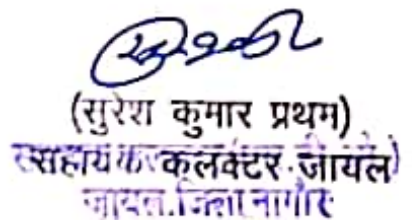 (सुरेश कुमार प्रथम)
सहायक कलक्टर जायल
जायल, जिला नागौर